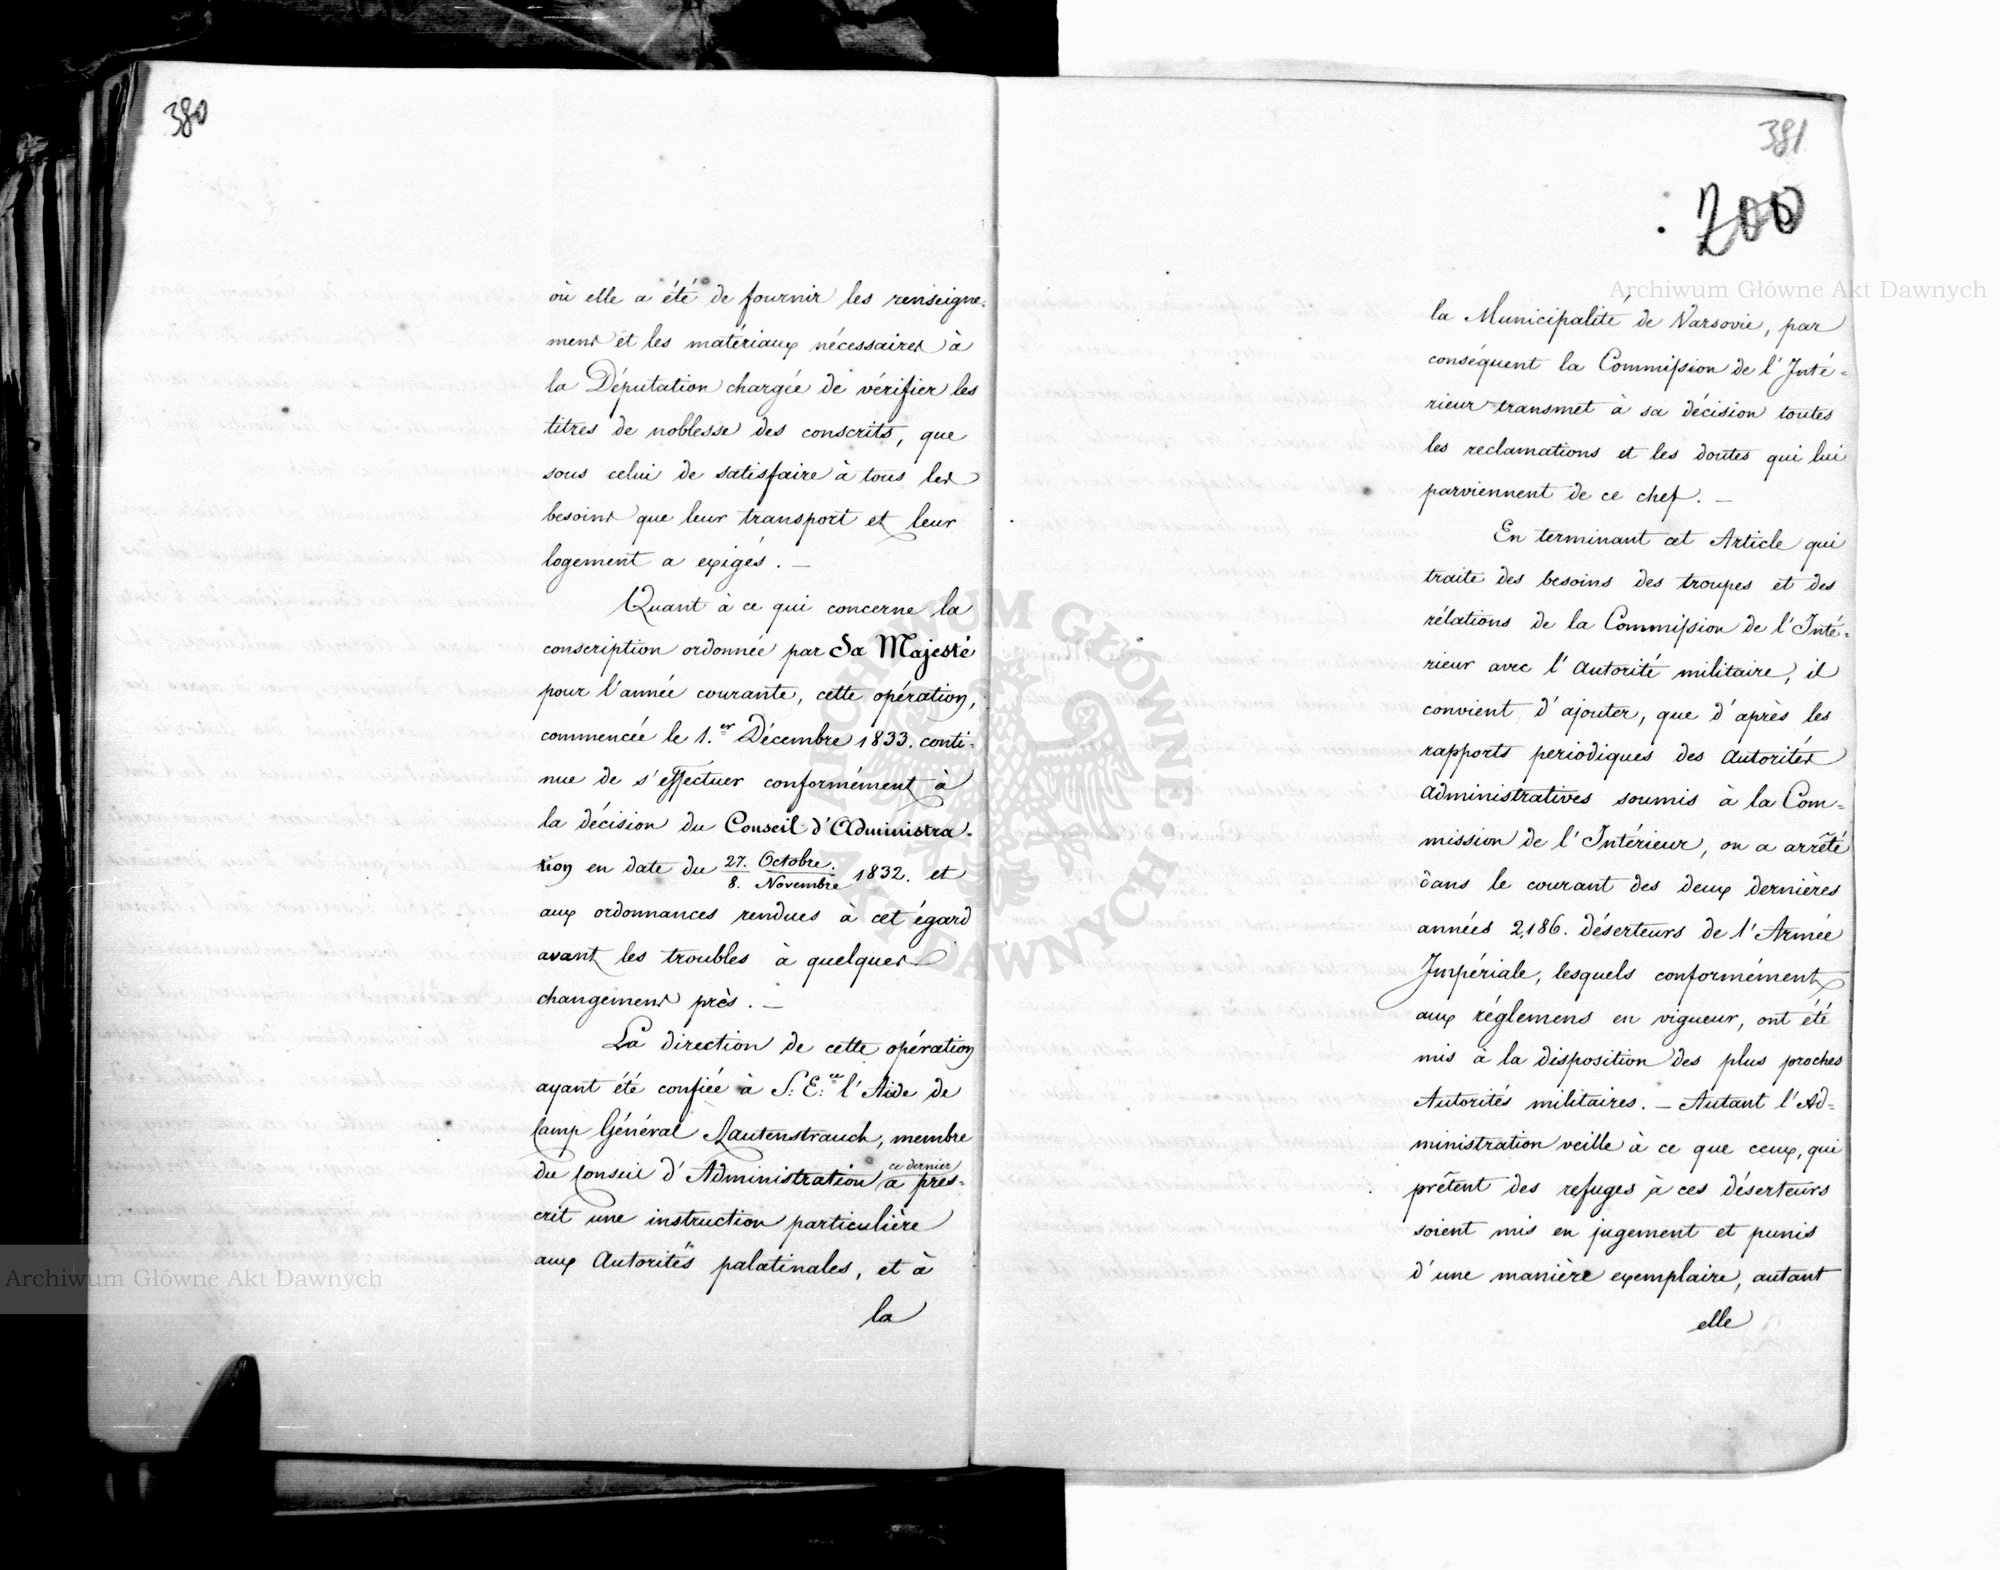 380
où elle a été de fournir les renseigne-
mens et les matériaux nécessaires à
la Députation chargée de vérifier les
titres de noblesse des conscrits, que
sous celui de satisfaire à tous les
besoins que leur transport et leur
logement a exigés. —
Quant à ce qui concerne la
conscription ordonnée par Sa Majesté
pour l'année courante, cette opération,
commencée le 1.er Décembre 1833. conti-
nue de s'effectuer conformément à
la décision du Conseil d'Administra-
tion en date du 27. Octobre. / 8. Novembre 1832. et
aux ordonnances rendues à cet égard
avant les troubles à quelques
changemens près. —
La direction de cette opération
ayant été confiée à S: E:ce l'Aide de
Camp Général Rautenstrauch, membre
du Conseil d'Administration ce dernier a pres-
crit une instruction particulière
aux Autorités palatinales, et à
la
381
200
la Municipalité de Varsovie, par
conséquent la Commission de l'Inté-
rieur transmet à sa décision toutes
les reclamations et les doutes qui lui
parviennent de ce chef. —
En terminant cet Article qui
traite des besoins des troupes et des
rélations de la Commission de l'Inté-
rieur avec l'Autorité militaire, il
convient d'ajouter, que d'après les
rapports periodiques des Autorités
Administratives soumis à la Com-
mission de l'Intérieur, on a arrêté
dans le courant des deux dernières
années 2,186. déserteurs de l'Armée
Impériale, lesquels conformément
aux réglemens en vigueur, ont été
mis à la disposition des plus proches
Autorités militaires. — Autant l'Ad-
ministration veille à ce que ceux, qui
prêtent des refuges à ces déserteurs
soient mis en jugement et punis
d'une manière exemplaire, autant
elle
Archiwum Główne Akt Dawnych
Archiwum Główne Akt Dawnych
ARCHIWUM GŁÓWNE AKT DAWNYCH